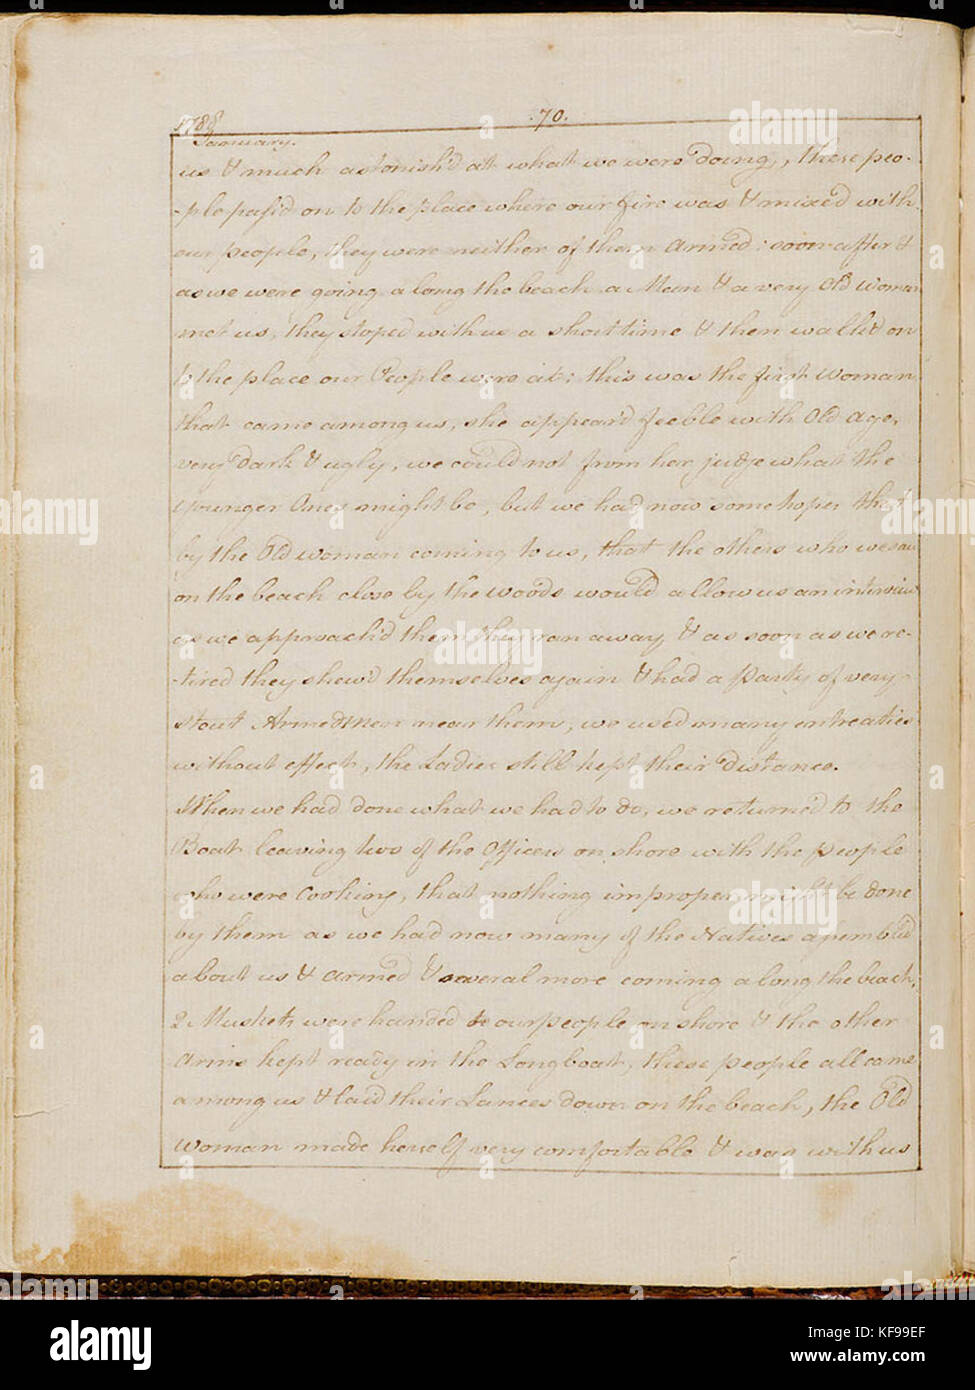 1788
70.
January.
us & much astonish'd at what we were doing, these peo-
-ple pass'd on to the place where our fire was & mixed with
our people, they were neither of them Armed: soon after &
as we were going along the beach a Man & a very Old Woman
met us, they stoped with us a short time & then walk'd on
to the place our People were at; this was the first Woman
that came among us, she appear'd feeble with Old Age,
very Dark & ugly, we could not from her judge what the
younger Ones might be, but we had now some hopes that
by the Old woman coming to us, that the others who we saw
on the beach close by the woods would allow us an interview
as we approach'd them they ran away & as soon as we re-
-tired they shew'd themselves again & had a party of very
stout Armed Men near them, we used many entreaties
without effect, the Ladies still kept their distance.
When we had done what we had to do, we return'd to the
Boat leaving two of the Officers on shore with the people
who were Cooking, that nothing improper might be done
by them as we had now many of the Natives assembled
about us & Armed & several more coming along the beach,
2 Muskets were handed to our people on shore & the other
Arms kept ready in the Longboat, these people all came
among us & laid their Lances down on the beach, the Old
Woman made herself very comfortable & was with us
alamy
Image ID: KF99EF
www.alamy.com